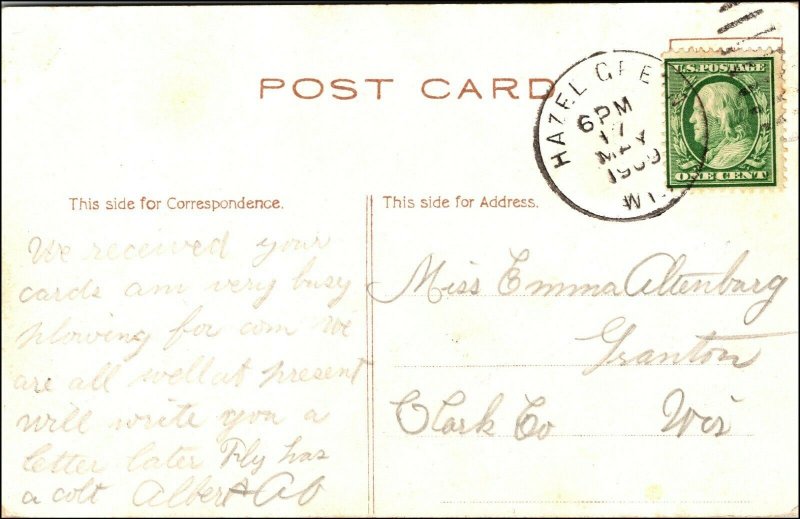 POST CARD
HAZEL GREEN
6PM
17
MAY
1909
WIS
U.S. POSTAGE
ONE CENT
This side for Correspondence.
This side for Address.
We received your
cards am very busy
plowing for corn We
are all well at present
will write you a
letter later Fly has
a colt Albert A
Miss Emma Altenburg
Granton
Clark Co Wis